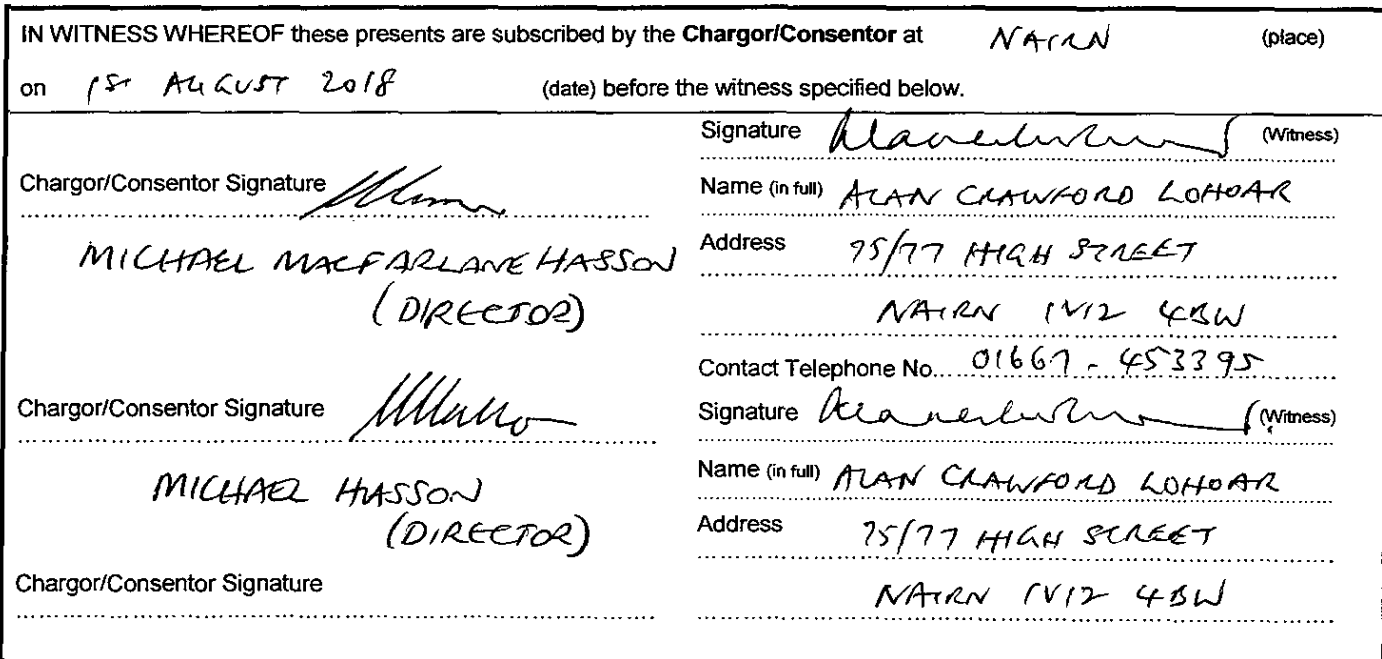 IN WITNESS WHEREOF these presents are subscribed by the Chargor/Consentor at NAIRN (place)
on 1ST AUGUST 2018 (date) before the witness specified below.
Chargor/Consentor Signature
MICHAEL MACFARLANE HASSON
(DIRECTOR)
Chargor/Consentor Signature
MICHAEL HASSON
(DIRECTOR)
Chargor/Consentor Signature
Signature (Witness)
Name (in full) ALAN CRAWFORD LOHOAR
Address 75/77 HIGH STREET
NAIRN IV12 4BW
Contact Telephone No. 01667 - 453395
Signature (Witness)
Name (in full) ALAN CRAWFORD LOHOAR
Address 75/77 HIGH STREET
NAIRN IV12 4BW